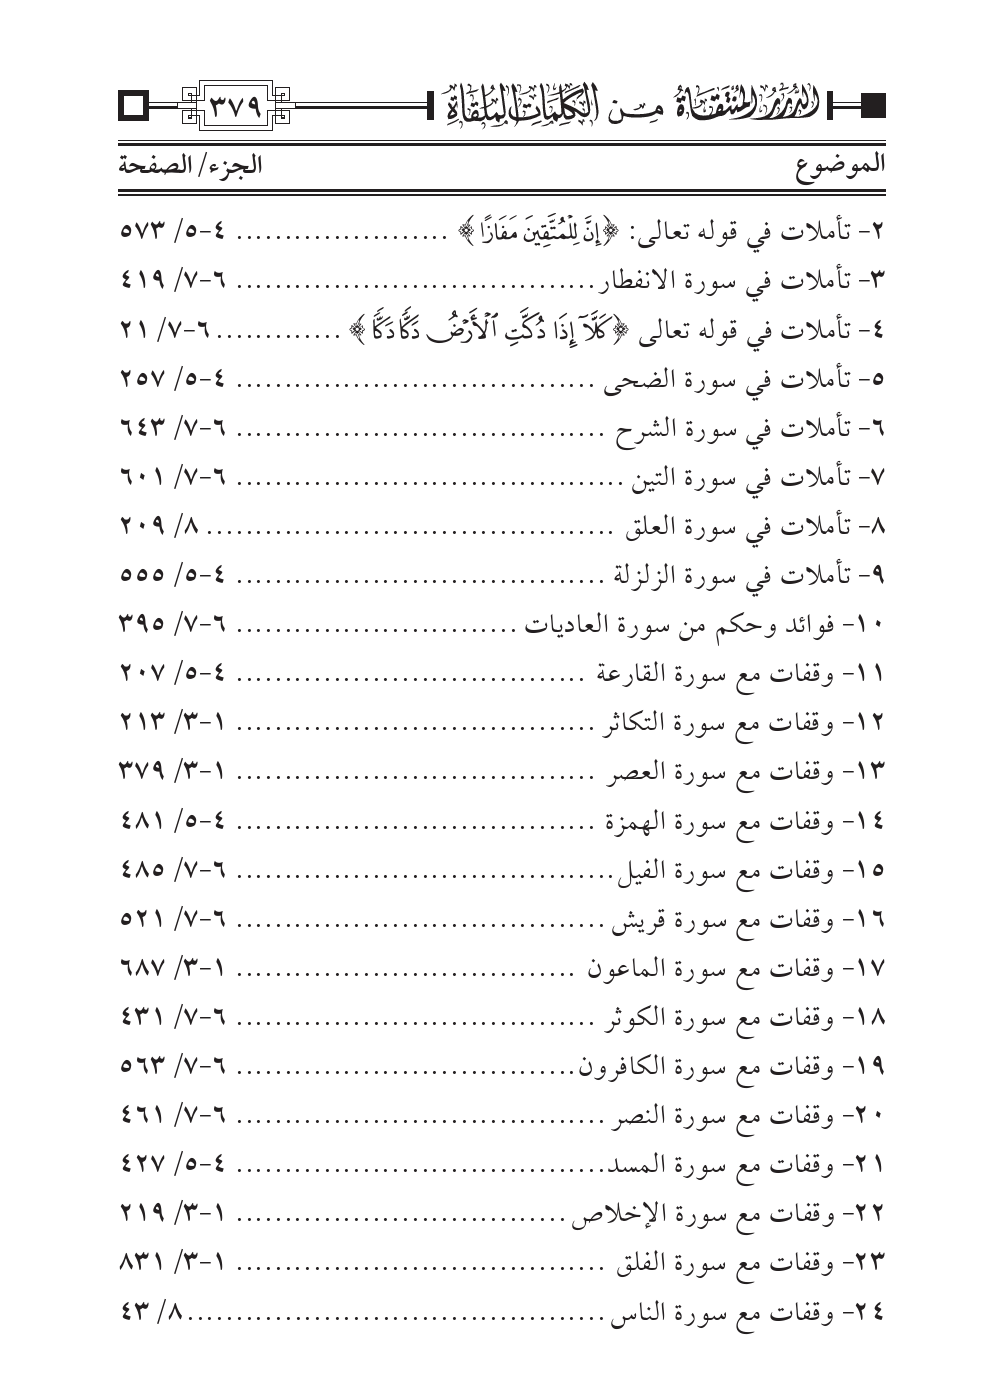 الدُّرَرُ المُنْتَقَاةُ مِن الكَلِمَاتِ المُلْقَاةِ ٣٧٩
الموضوع الجزء/ الصفحة
٢- تأملات في قوله تعالى: ﴿إِنَّ لِلْمُتَّقِينَ مَفَازًا﴾ ...................... ٤-٥/ ٥٧٣
٣- تأملات في سورة الانفطار..................................... ٦-٧/ ٤١٩
٤- تأملات في قوله تعالى ﴿كَلَّآ إِذَا دُكَّتِ ٱلْأَرْضُ دَكًّا دَكًّا﴾ ............. ٦-٧/ ٢١
٥- تأملات في سورة الضحى ..................................... ٤-٥/ ٢٥٧
٦- تأملات في سورة الشرح ...................................... ٦-٧/ ٦٤٣
٧- تأملات في سورة التين ........................................ ٦-٧/ ٦٠١
٨- تأملات في سورة العلق .......................................... ٨/ ٢٠٩
٩- تأملات في سورة الزلزلة ...................................... ٤-٥/ ٥٥٥
١٠- فوائد وحكم من سورة العاديات ............................. ٦-٧/ ٣٩٥
١١- وقفات مع سورة القارعة .................................... ٤-٥/ ٢٠٧
١٢- وقفات مع سورة التكاثر ..................................... ١-٣/ ٢١٣
١٣- وقفات مع سورة العصر ..................................... ١-٣/ ٣٧٩
١٤- وقفات مع سورة الهمزة ..................................... ٤-٥/ ٤٨١
١٥- وقفات مع سورة الفيل....................................... ٦-٧/ ٤٨٥
١٦- وقفات مع سورة قريش ...................................... ٦-٧/ ٥٢١
١٧- وقفات مع سورة الماعون ................................... ١-٣/ ٦٨٧
١٨- وقفات مع سورة الكوثر ..................................... ٦-٧/ ٤٣١
١٩- وقفات مع سورة الكافرون................................... ٦-٧/ ٥٦٣
٢٠- وقفات مع سورة النصر ...................................... ٦-٧/ ٤٦١
٢١- وقفات مع سورة المسد...................................... ٤-٥/ ٤٢٧
٢٢- وقفات مع سورة الإخلاص .................................. ١-٣/ ٢١٩
٢٣- وقفات مع سورة الفلق ...................................... ١-٣/ ٨٣١
٢٤- وقفات مع سورة الناس........................................... ٨/ ٤٣